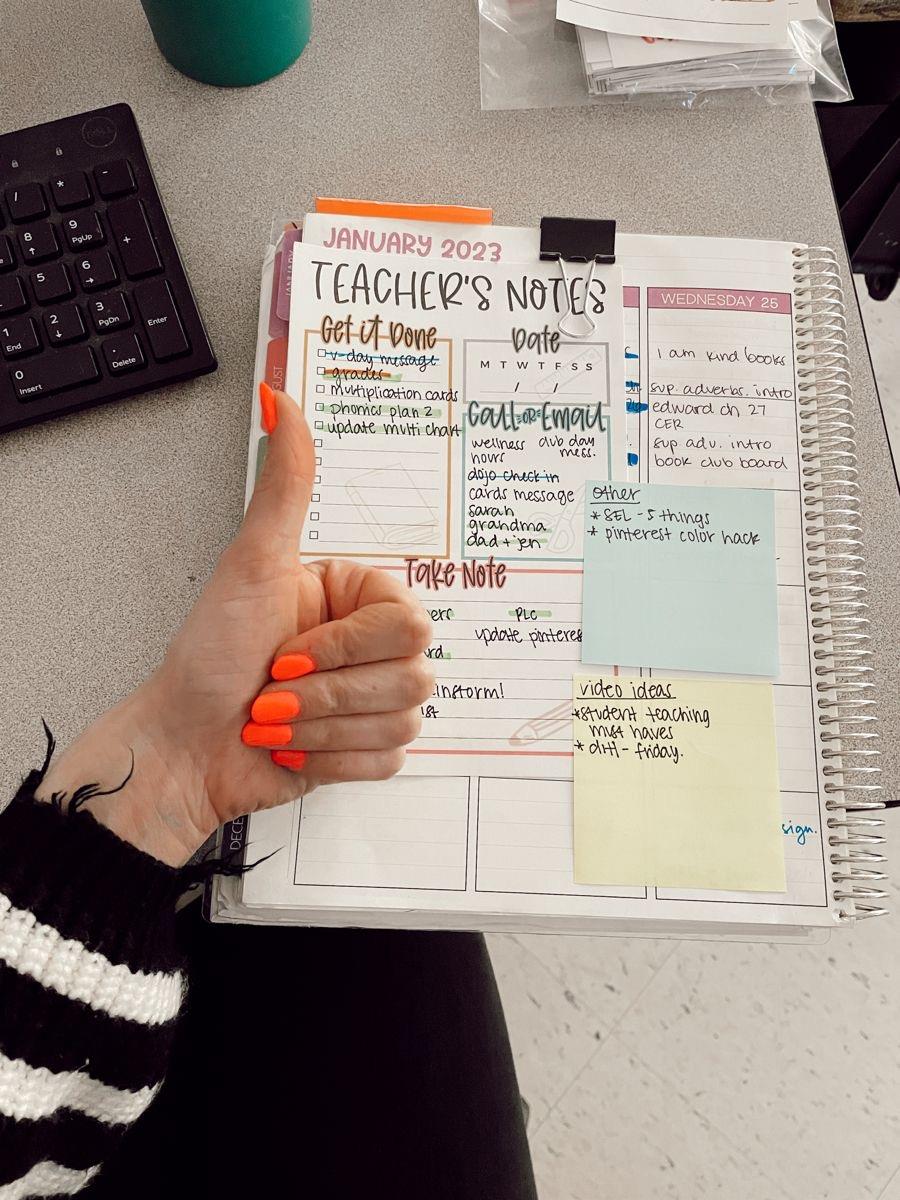 DELL
/
*
-
8
9
PgUp
+
5
6
1
End
2
3
PgDn
Enter
0
Insert
.
Delete
JANUARY 2023
TEACHER'S NOTES
Get it Done
v-day message
grades
multiplication cards
phonics plan 2
update multi chart
Date
M T W T F S S
/ /
CALL OR EMAIL
wellness club day
hours mess.
dojo check in
cards message
sarah
grandma
dad + jen
Take Note
PLC
update
instorm!
WEDNESDAY 25
I am kind books
sup. adverbs. intro
edward ch 27
CER
sup adv. intro
book club board
other
* SEL - 5 things
* pinterest color hack
video ideas
*student teaching
must haves
* ditl - friday.
sign.
JANUARY